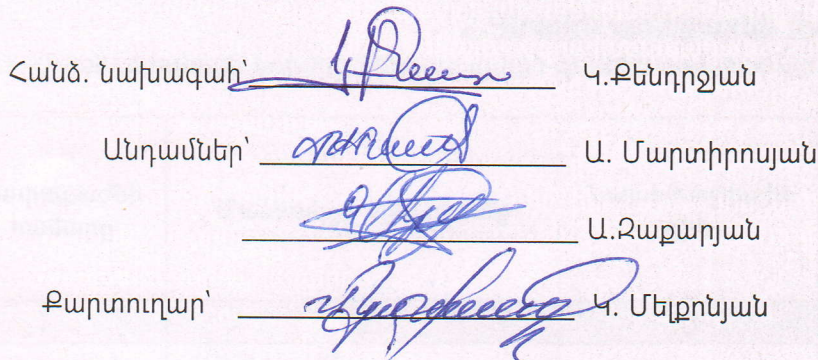 Հանձ. նախագահ՝ Կ.Քենդրջյան
Անդամներ՝ Ա. Մարտիրոսյան
Ա.Զաքարյան
Քարտուղար՝ Կ. Մելքոնյան